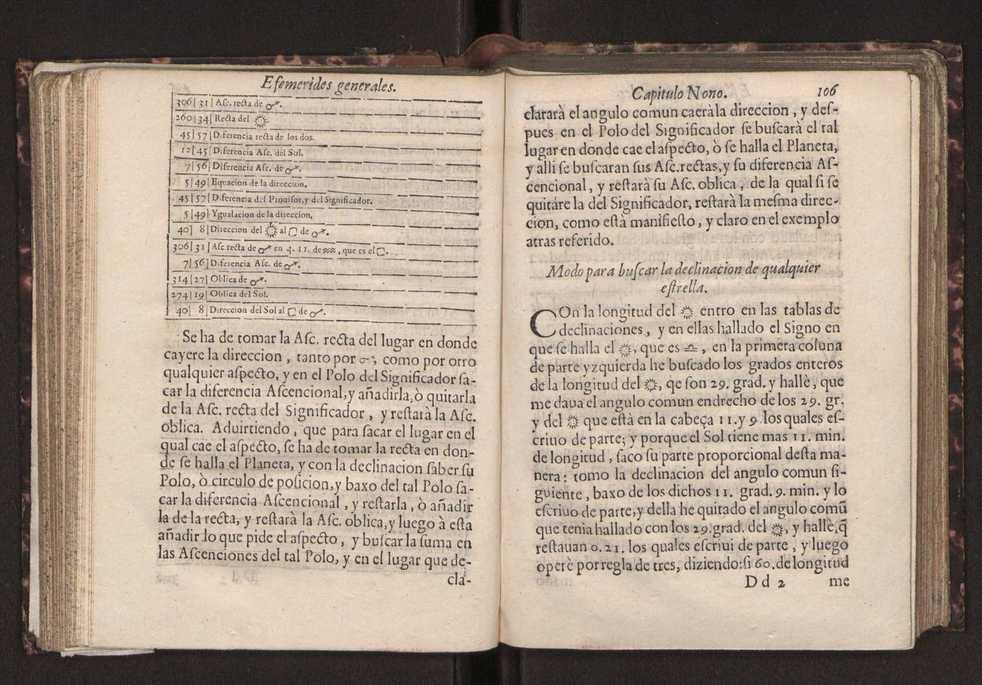 Efemerides generales.
306|31| Aſc. recta de ♂.
260|34| Recta del ☉.
45|57| Diferencia recta de los dos.
12|45| Diferencia Aſc. del Sol.
7|56| Diferencia Aſc. de ♂.
5|49| Equacion de la direccion.
45|57| Diferencia del Promiſor, y del Significador.
5|49| Ygualacion de la direccion,
40| 8| Direccion del ☉ al □ de ♂.
306|31| Aſc recta de ♂ en 4. 11. de ♒, que es el □.
7|56| Diferencia Aſc. de ♂.
314|27| Oblica de ♂.
274|19| Oblica del Sol.
40| 8| Direccion del Sol al □ de ♂.
Se ha de tomar la Aſc. recta del lugar en donde
cayere la direccion, tanto por ☍, como por otro
qualquier aſpecto, y en el Polo del Significador ſa-
car la diferencia Aſcencional, y añadirla, ò quitarla
de la Aſc. recta del Significador, y reſtarà la Aſc.
oblica. Aduirtiendo, que para ſacar el lugar en el
qual cae el aſpecto, ſe ha de tomar la recta en don-
de ſe halla el Planeta, y con la declinacion ſaber ſu
Polo, ò circulo de poſicion, y baxo del tal Polo ſa-
car la diferencia Aſcencional, y reſtarla, ò añadir
la de la recta, y reſtarà la Aſc. oblica, y luego à eſta
añadir lo que pide el aſpecto, y buſcar la ſuma en
las Aſcenciones del tal Polo, y en el lugar que de-
cla-
Capitulo Nono. 106
clararà el angulo comun caerà la direccion, y deſ-
pues en el Polo del Significador ſe buſcarà el tal
lugar en donde cae el aſpecto, ò ſe halla el Planeta,
y alli ſe buſcaran sus Aſc. rectas, y ſu diferencia Aſ-
cencional, y reſtarà ſu Aſc. oblica, de la qual ſi ſe
quitàre la del Significador, reſtarà la meſma direc-
cion, como eſtà manifieſto, y claro en el exemplo
atras referido.
Modo para buſcar la declinacion de qualquier
eſtrella.
COn la longitud del ☉ entro en las tablas de
declinaciones, y en ellas hallado el Signo en
que ſe halla el ☉, que es ♎, en la primera coluna
de parte yzquierda he buſcado los grados enteros
de la longitud del ☉, qe ſon 29. grad. y hallè, que
me daua el angulo comun endrecho de los 29. gr,
y del ☉ que eſtà en la cabeça 11. y 9 los quales eſ-
criuo de parte; y porque el Sol tiene mas 11. min.
de longitud, ſaco ſu parte proporcional deſta ma-
nera: tomo la declinacion del angulo comun ſi-
guiente, baxo de los dichos 11. grad. 9. min. y lo
eſcriuo de parte, y della he quitado el angulo comũ
que tenia hallado con los 29. grad. del ☉, y hallè, q̃
reſtauan 0. 21. los quales eſcriui de parte, y luego
operè por regla de tres, diziendo: ſi 60. de longitud
D d 2 me